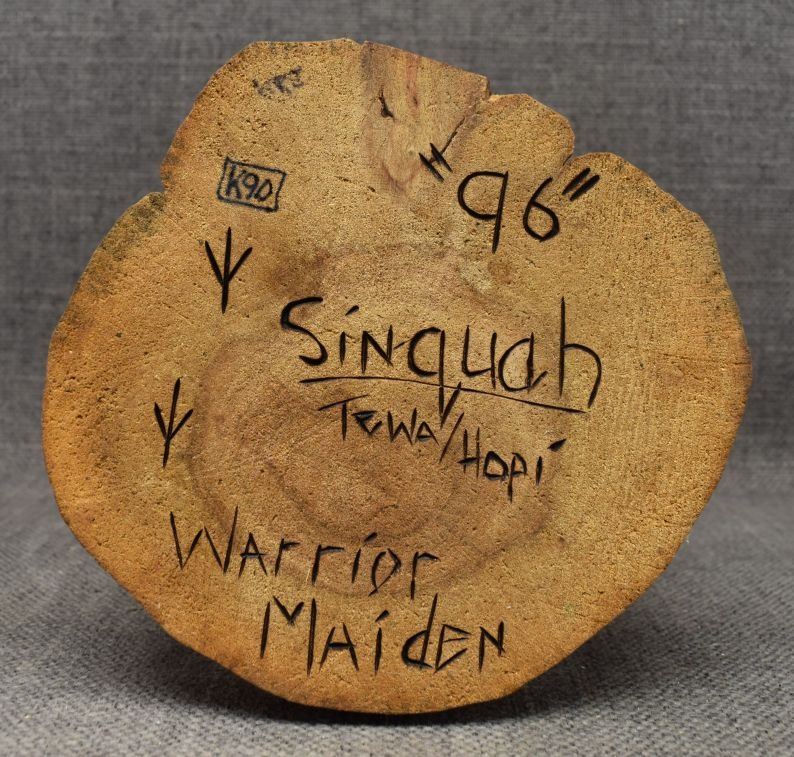 K90
"96"
Sinquah
Tewa/Hopi
Warrior
Maiden